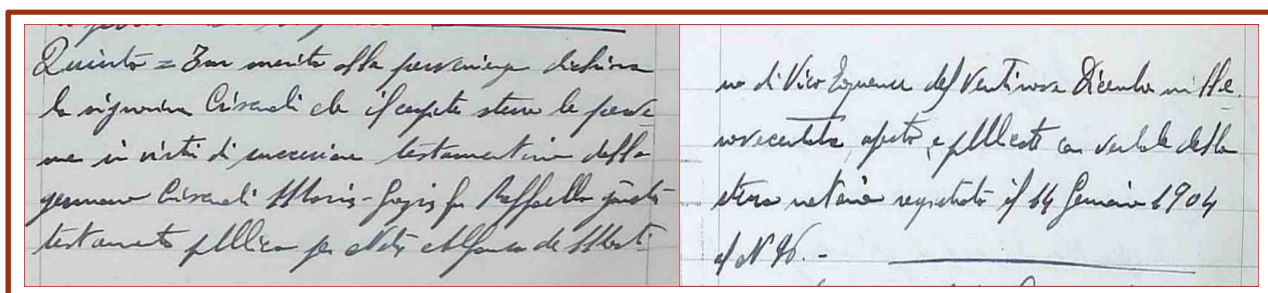 Quinto = In merito alla pervenienza dichiara
la signorina Cisardi che il cespite stesso le perve
ne in virtù di successione testamentaria della
germana Cisardi Maria-Grazia fu Raffaele giusta
testamento pubblico per Notar Alfonso de Marti
no di Vico Equense del Ventinove Dicembre mille
novecentotre, aperto e pubblicato con verbale dello
stesso notaio registrato il 14 Gennaio 1904
al N°